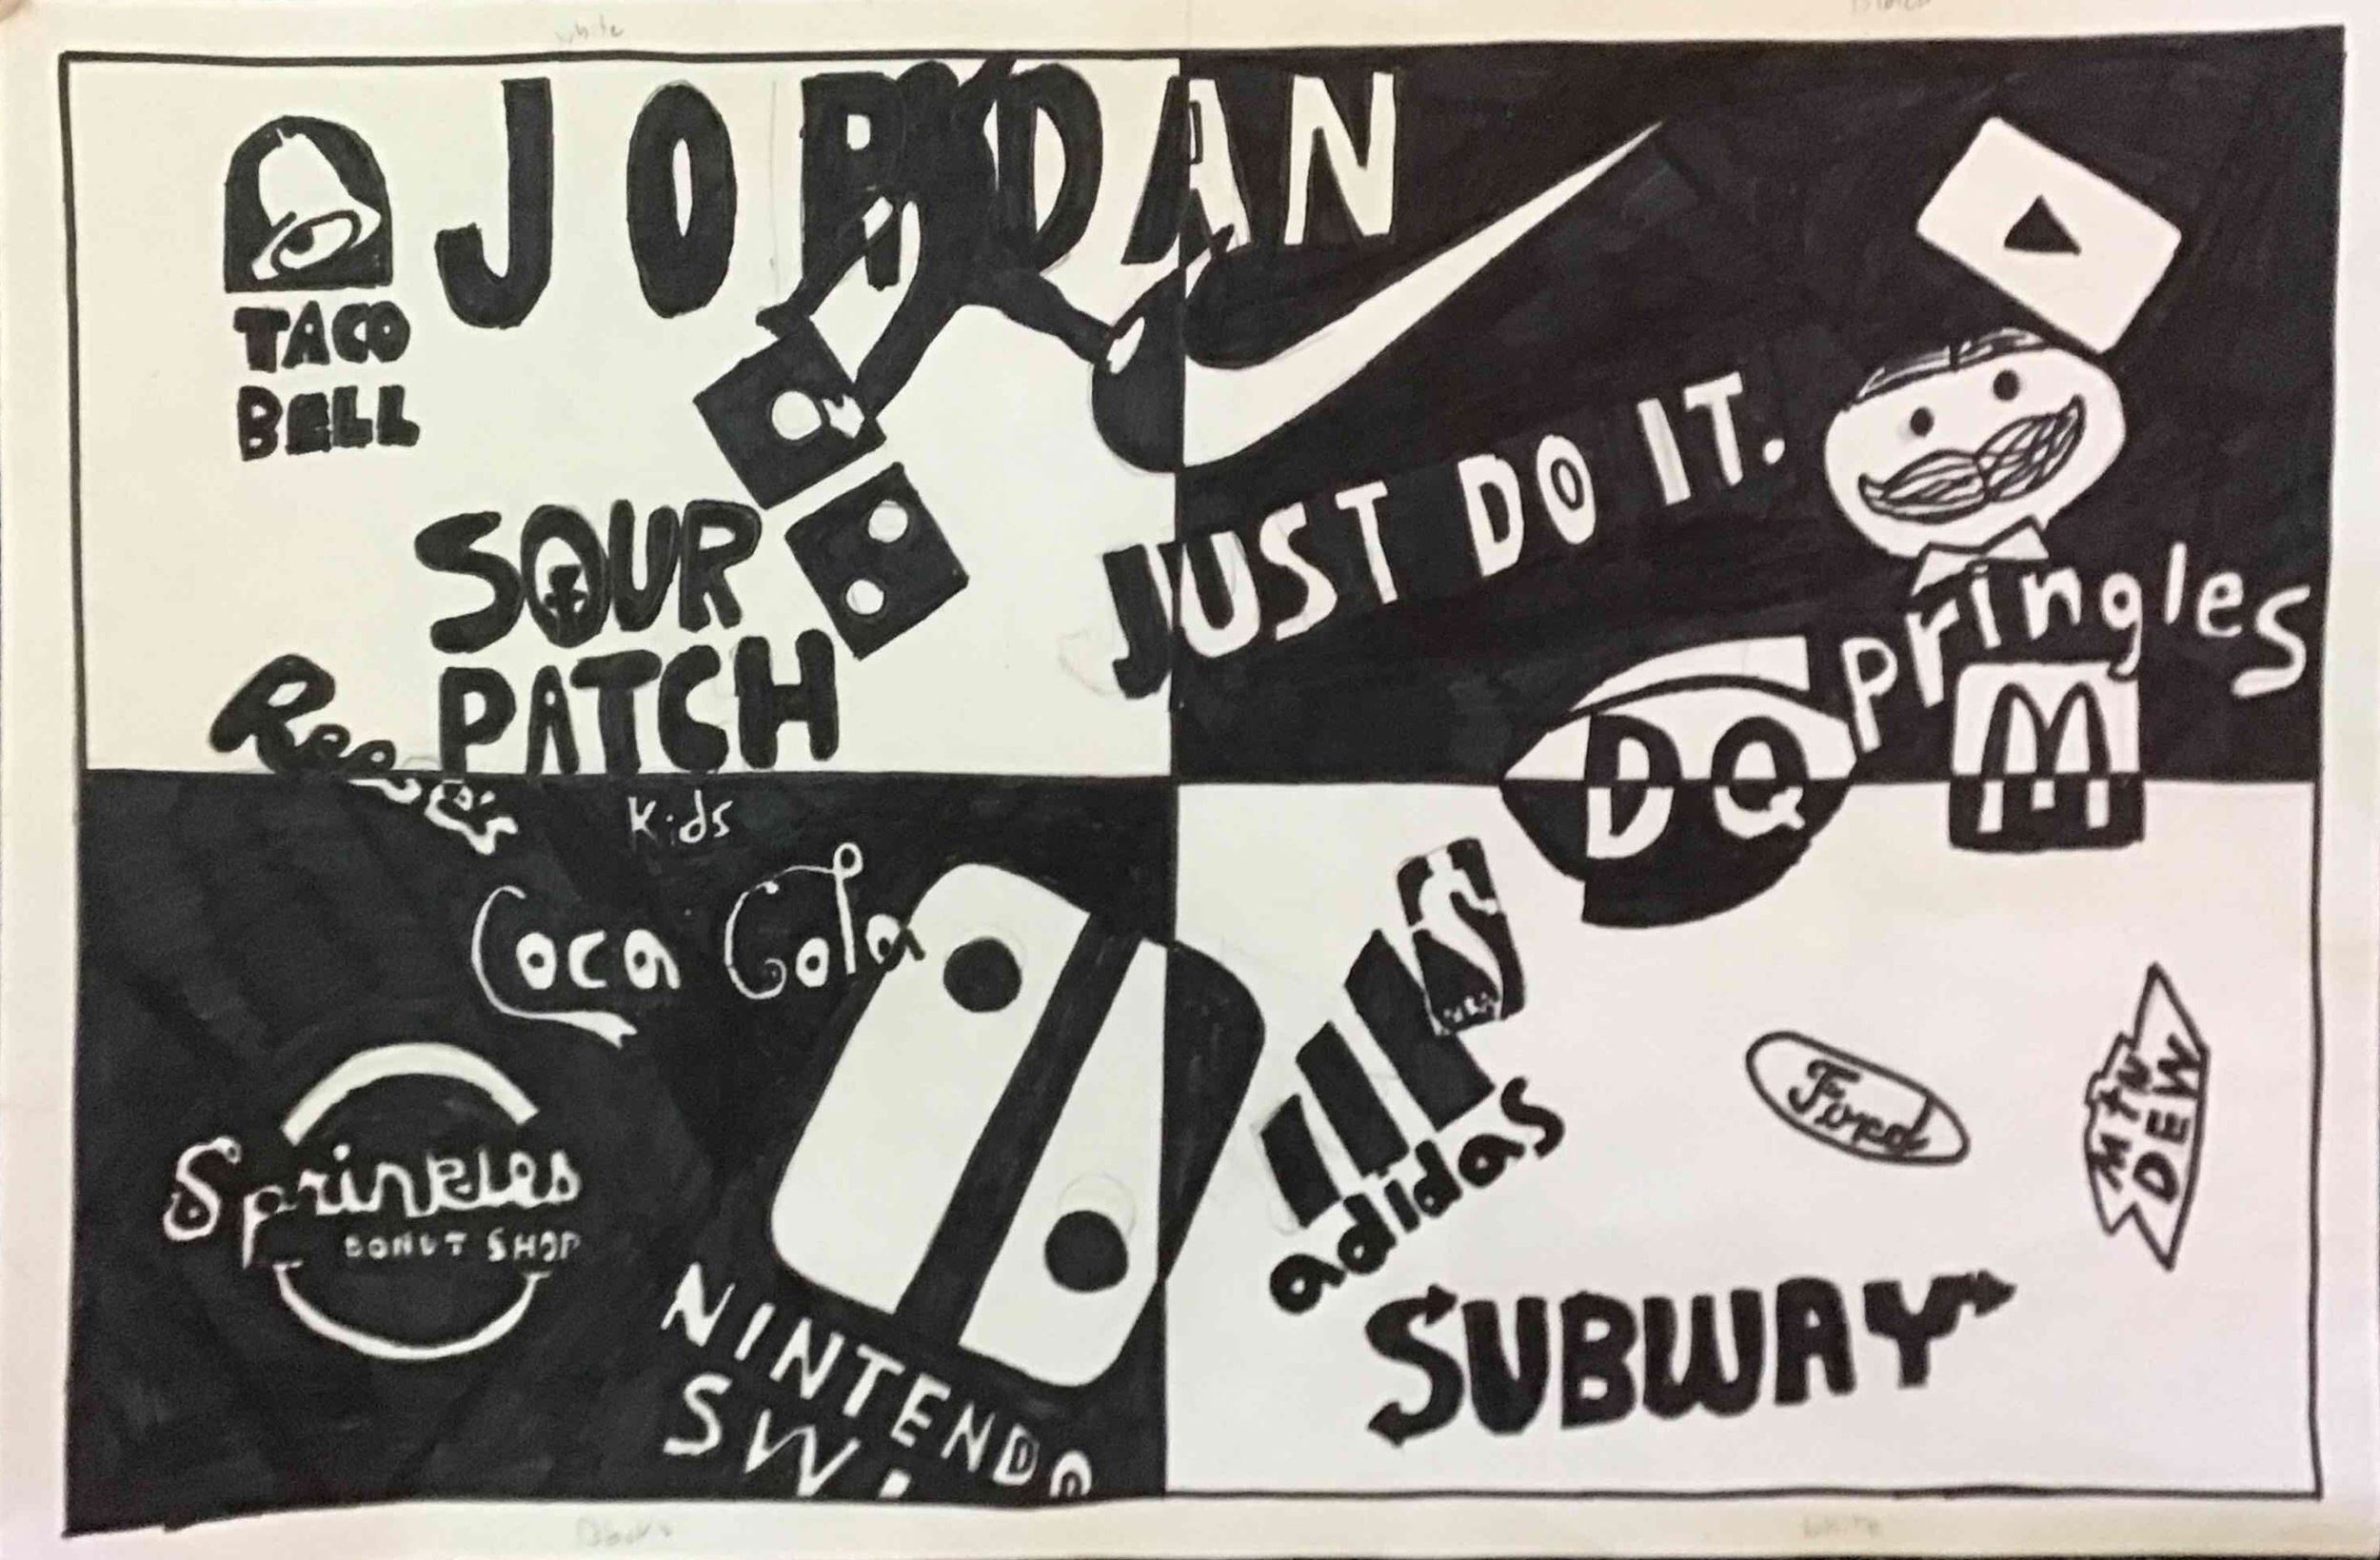 white
Black
JORDAN
TACO
BELL
JUST DO IT.
SOUR
PATCH
Kids
Pringles
Reese's
DQ
M
Coca Cola
S
adidas
Ford
MTN
DEW
Sprinkles
DONUT SHOP
NINTENDO
SWI
SUBWAY
Black
White